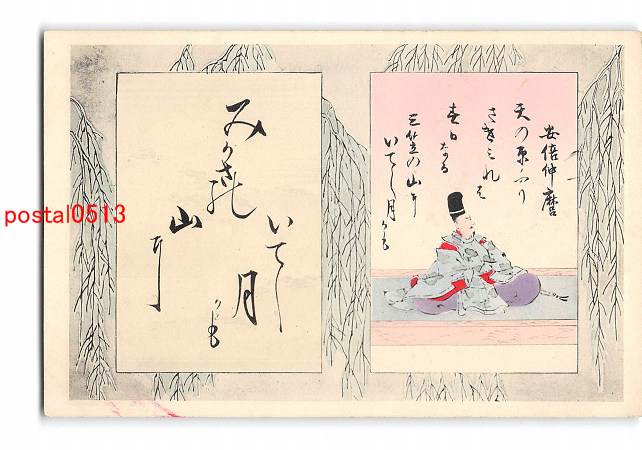 安倍仲麿
天の原ふり
さけみれは
春日なる
三笠の山に
いてし月かも
みかさの
山に
いてし
月
かも
postal0513